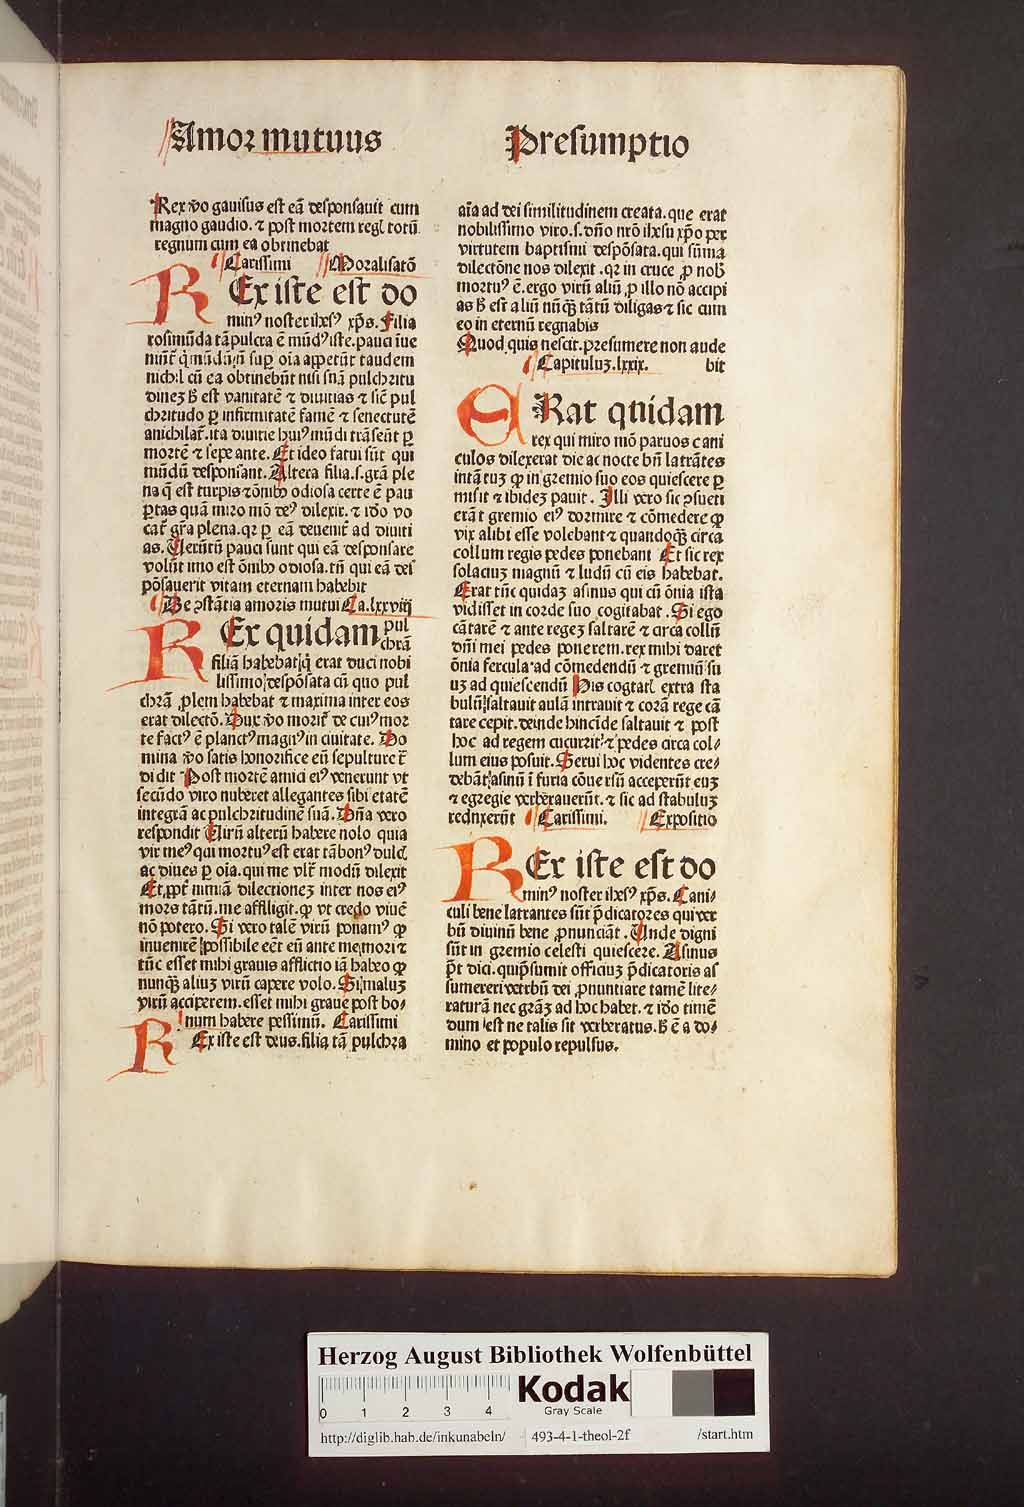 Amor mutuus
Presumptio
Rex v̄o gavisus est eā desponsavit cum
magno gaudio. ⁊ post mortem regꝭ totū
regnum cum ea obtinebat
Carissimi Moralisatō
REx iste est do
minꝰ noster ihꝰs xp̄s. Filia
rosimūda tā pulcra ē mūdꝰ iste. pauci iuē
nichil cū ea obtinebūt nisi suā pulchritu
dineꝫ ꝸ est vanitatē ⁊ divitias ⁊ sic̄ pul
chritudo ꝑ infirmitatē famē ⁊ senectutē
anichilat᷑. ita divitie huiꝰ mūdi trāseūt ꝑ
mortē ⁊ sepe ante. Et ideo fatui sūt qui
mūdū desponsant. Altera filia .s. grā ple
na q̄ est turpis ⁊ ōnibꝰ odiosa certe ē pau
ꝑtas quā miro mō deꝰ dilexit. ⁊ iō vo
cat᷑ gr̄a plena. qꝛ ꝑ eā devenit᷑ ad diviti
as. Verūtū pauci sunt qui eā desponsare
volūt imo est ōnibꝰ odiosa. tn̄ qui eā des
pōsaverit vitam eternam habebit
De ꝯstātia amoris mutui Ca. lxxviij
REx quidam pul
chrā
filiā habebat q̄ erat duci nobi
lissimo despōsata cū quo pul
chrā ꝓlem habebat ⁊ maxima inter eos
erat dilectō. Dux v̄o morit᷑ de cuiꝰ mor
te factꝰ ē planctꝰ magnꝰ in civitate. Do
mina v̄o satis honorifice eū sepulture t᷑
di dit Post mortē amici eiꝰ venerunt vt
secūdo viro nuberet allegantes sibi etatē
integrā ac pulchritudinē suā. Dn̄a vero
respondit Virū alterū habere nolo quia
vir meꝰ qui mortuꝰ est erat tā bonꝰ dulcꝭ
ac dives ꝑ oīa. qui me vlt᷑ modū dilexit
Et ꝓpt᷑ nimiā dilectioneꝫ inter nos eiꝰ
mors tātū. me affligit. ꝙ vt credo viuē
nō potero. Si vero talē virū ponamꝰ ꝙ
invenirē possibile eēt eū ante me mori ⁊
tūc esset mihi gravis afflictio iā habeo ꝙ
nunꝗ̄ aliuꝫ virū capere volo. Si maluꝫ
virū acciperem. esset mihi grave post bo⸗
num habere pessimū. Carissimi
REx iste est deus. filia tā pulchra
aīa ad dei similitudinem creata. que erat
nobilissimo viro. s. dn̄o nr̄o ihꝰsu xp̄o per
virtutem baptismi despōsata. qui sūma
dilectōne nos dilexit. qꝛ in cruce ꝓ nobꝭ
mortuꝰ ē. ergo virū aliū ꝓ illo nō accipi
as ꝸ est aliū nūꝗ̄ tātū diligas ⁊ sic cum
eo in eternū regnabis
Quod quis nescit. presumere non aude
Capituluꝫ. lxxix. bit
ERat quidam
rex qui miro mō parvos cani
culos dilexerat die ac nocte bn̄ latrātes
intātuꝫ ꝙ in gremio suo eos quiescere ꝑ
misit ⁊ ibideꝫ pavit. Illi vero sic ꝯsueti
erāt gremio eiꝰ dormire ⁊ cōmedere ꝙ
vix alibi esse volebant ⁊ quandoꝗ̄ circa
collum regis pedes ponebant Et sic rex
solaciuꝫ magnū ⁊ ludū cū eis habebat.
Erat tūc quidaꝫ asinus qui cū ōnia ista
vidisset in corde suo cogitabat. Si ego
cātarē ⁊ ante regeꝫ saltarē ⁊ circa collū
dn̄i mei pedes ponerem. rex mihi daret
ōnia fercula ad cōmedendū ⁊ gremiū su
uꝫ ad quiescendū His cogtatꝭ extra sta
bulū saltavit aulā intravit ⁊ corā rege cā
tare cepit. deinde hincīde saltavit ⁊ post
hoc ad regem cucurrit ⁊ pedes circa col⸗
lum eius posuit. Servi hoc videntes cre⸗
debāt asinū ī furia cōversū acceperūt euꝫ
⁊ egregie verberaverūt. ⁊ sic ad stabuluꝫ
reduxerūt Carissimi. Expositio
REx iste est do
minꝰ noster ihꝰs xp̄s. Cani⸗
culi bene latrantes sūt p̄dicatores qui ver
bū divinū bene ꝓnunciāt. Unde digni
sūt in gremio celesti quiescere. Asinus
p̄t dici. qui p̄sumit officiuꝫ p̄dicatoris as
sumere ⁊ verbū dei ꝓnuntiare tamē lite⸗
raturā nec grāꝫ ad hoc habet. ⁊ iō timē
dum est ne talis sit verberatus. ꝸ ē a do⸗
mino et populo repulsus.
Herzog August Bibliothek Wolfenbüttel
0 1 2 3 4
Kodak
Gray Scale
http://diglib.hab.de/inkunabeln/ 493-4-1-theol-2f /start.htm